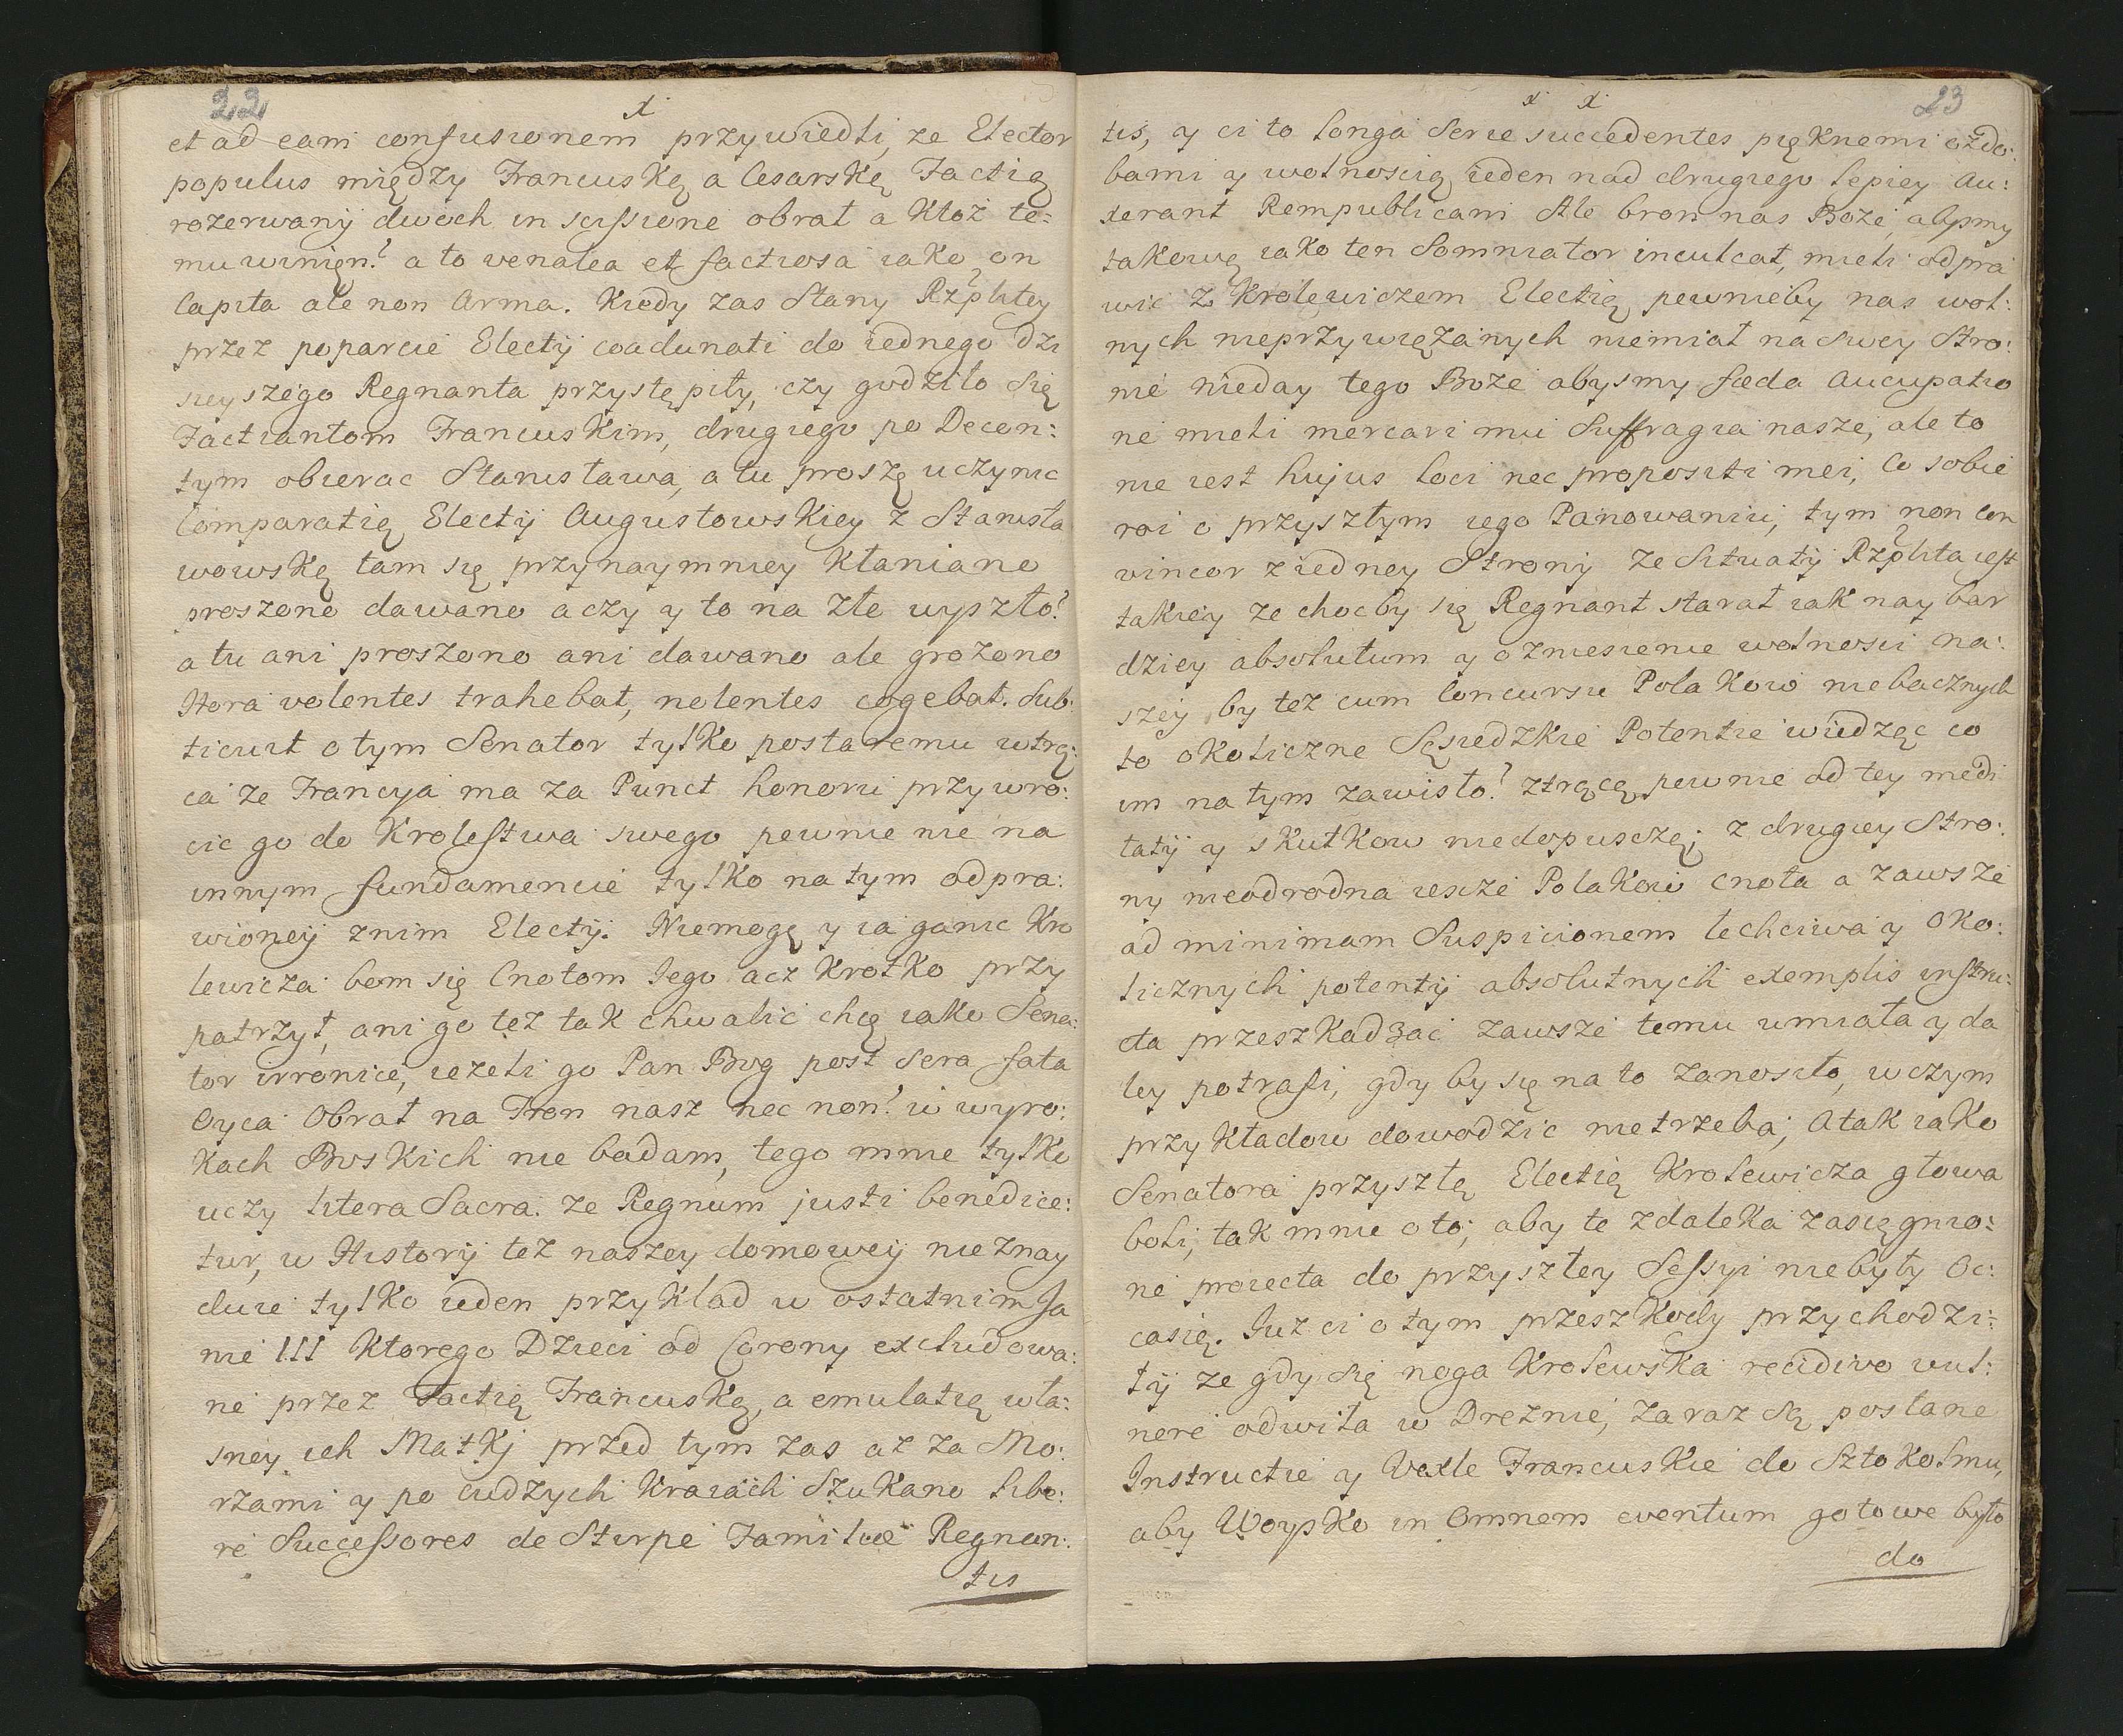 22
x
et ad eam confusionem przywiedli, ze Elector
populus między Francuską a Cesarską Factią
rozerwanÿ dwoch in scissione obrał a Ktoż te:
mu winięn? a to venalea et factiosa iako on
Capita ale non Arma. Kiedy zas Stany Rzplitey
przez poparcie Electÿ coadunati do iednego dzi
sieyszego Regnanta przystąpiły, czy godziło się
Factiantom Francuskim, drugiego po Decen:
tym obierac Stanisława, a tu proszę uczynic
Comparatią Electÿ Augustowskiey z Stanisła
wowską tam się przynaymniey Kłaniano
proszono dawano a czy y to na złe wyszło?
a tu ani proszono ani dawano ale grozono
Hora volentes trahebat, nolentes cogebat. Sub:
ticuit o tym Senator tylko postaremu wtrą:
ca ze Francya ma za Punct honoru przywro:
cic go do Krolestwa swego pewnie nie na
innym fundamencie tylko na tym odpra:
wioneÿ znim Electÿ. Niemogę y ia ganic Kro
lewicza bom się Cnotom Jego acz Krotko przy
patrzył, ani go tez tak chwalic chcę iako Sena:
tor irronice, iezeli go Pan Bog post sera fata
Oyca Obrał na Tron nasz nec non? w wyro:
Kach Boskich nie badam, tego mnie tylko
uczy litera Sacra. ze Regnum justi benedice:
tur, w Historÿ tez naszey domoweÿ nieznay
duie tylko ieden przykład w ostatnim Ja
nie III Ktorego Dzieci od Corony excludowa:
ne przez Factią Francuską, a emulatią wła:
sney ich Matkj przed tym zas az za Mo:
rzami y po cudzych Kraiach Szukano libe:
re Successores de Stirpe Familiæ Regnan:
tis
x x
23
tis, y ci to longa serie succedentes pięknemi ozdo:
bami y wolnoscią ieden nad drugiego lepiey Au:
xerant Rempublicam Ale bron nas Boże, abysmy
takową iako ten Somniator inculcat, mieli odpra
wic z Krolewiczem Electią pewnieby nas wol:
nych nieprzywiązanych niemiał na swey Stro:
nie nieday tego Boze abysmy fæda Aucupatio
ne mieli mercari mu Suffragia nasze, ale to
nie iest hujus loci nec propositi mei, Co sobie
roi o przyszłym iego Panowaniu, tym non con
vincor z iedney Stronÿ ze Situatÿ Rzplita iest
takieÿ ze chocby się Regnant starał iak nay bar
dziey absolutum y o zniesienie wolnosci na:
szeÿ, by tez cum Concursu Polakow niebacznych
to okoliczne Sąsiedzkie Potentie widząc co
im na tym zawisło? ztrącą pewnie od tey medi
tatÿ y skutkow niedopuszczą; z drugiey Stro:
ny nieodrodna iescze Polakow cnota a zawsze
ad minimam Suspicionem lechciwa y oko:
licznych potentÿ absolutnych exemplis instru:
cta przeszkadzac zawsze temu umiała y da
ley potrafi, gdy by się na to zanosiło, w czym
przykładow dowodzic nietrzeba, Atak iako
Senatora przyszłą Electią Krolewicza głowa
boli, tak mnie o to, aby te zdaleka zasięgnio:
ne proiecta do przyszłey Sessyi niebyły Oc:
casią. Iuz ci o tym przeszkody przychodzi:
łÿ ze gdy się noga Krolewska recidivo vul:
nere odwiła w Dreznie, zaraz są posłane
Instructie y Vexle Francuskie do Sztokolmu,
aby Woysko in Omnem eventum gotowe było
do